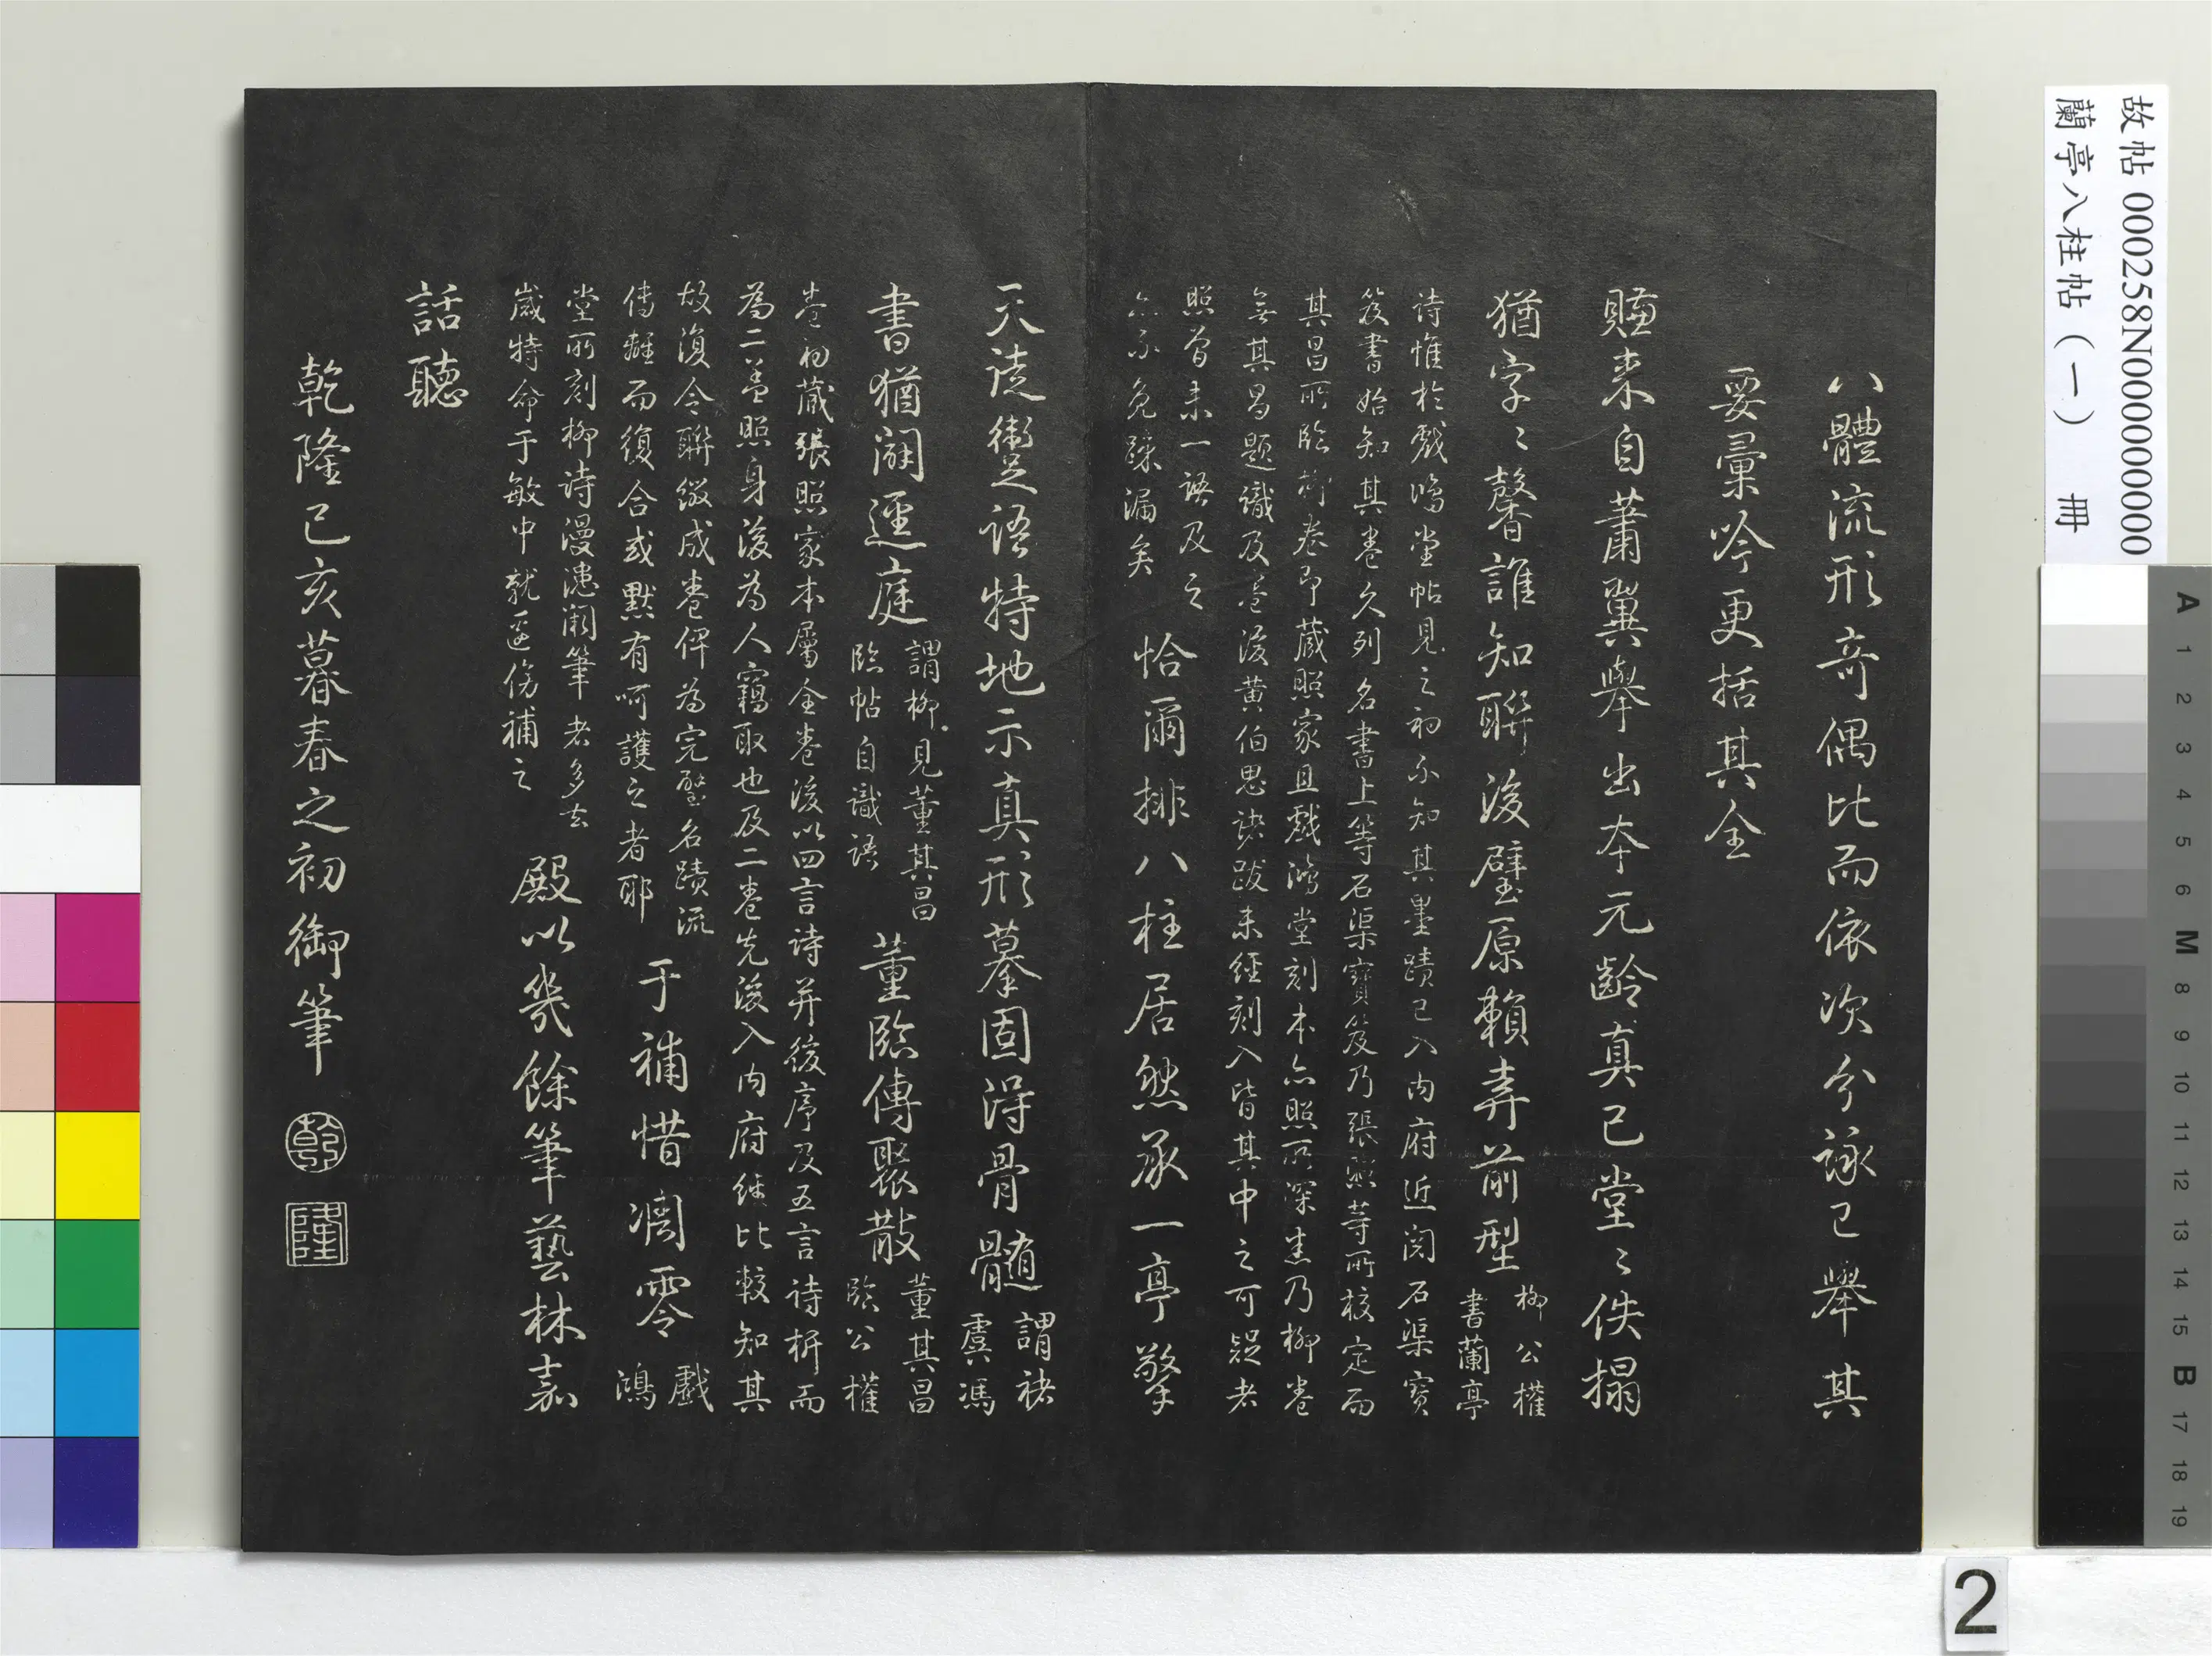 八體流形奇偶比而依次分詠已舉其
要彙吟更括其全
賺來自蕭翼舉出本元齡真已堂〻佚搨
猶字〻馨誰知聯後璧原賴弆前型柳公權
書蘭亭
詩惟於戲鴻堂帖見之初不知其墨蹟已入內府近閱石渠寶
笈書始知其卷久列名書上等石渠寶笈乃張照等所校定而
其昌所臨柳卷即藏照家且戲鴻堂刻本亦照所深悉乃柳卷
無其昌題識及卷後黃伯思諸跋未經刻入皆其中之可疑者
照曾未一語及之
亦不免疎漏矣
恰爾排八柱居然承一亭擎
天徒衒足語特地示真形摹固得骨髓謂褚
虞馮
書猶闢逕庭謂柳見董其昌
臨帖自識語
董臨傳聚散董其昌
臨公權
卷初藏張照家本屬全卷後以四言詩并後序及五言詩析而
為二蓋照身後為人竊取也及二卷先後入內府繼比較知其
故復令聯綴成卷俾為完璧名蹟流
傳離而復合或默有呵護之者耶
于補惜凋零戲
鴻
堂所刻柳詩漫漶闕筆者多去
歲特命于敏中就邊傍補之
殿以幾餘筆藝林嘉
話聽
乾隆己亥暮春之初御筆
乾
隆
故帖 000258N000000000
蘭亭八柱帖（一） 冊
A 1 2 3 4 5 6 M 8 9 10 11 12 13 14 15 B 17 18 19
2